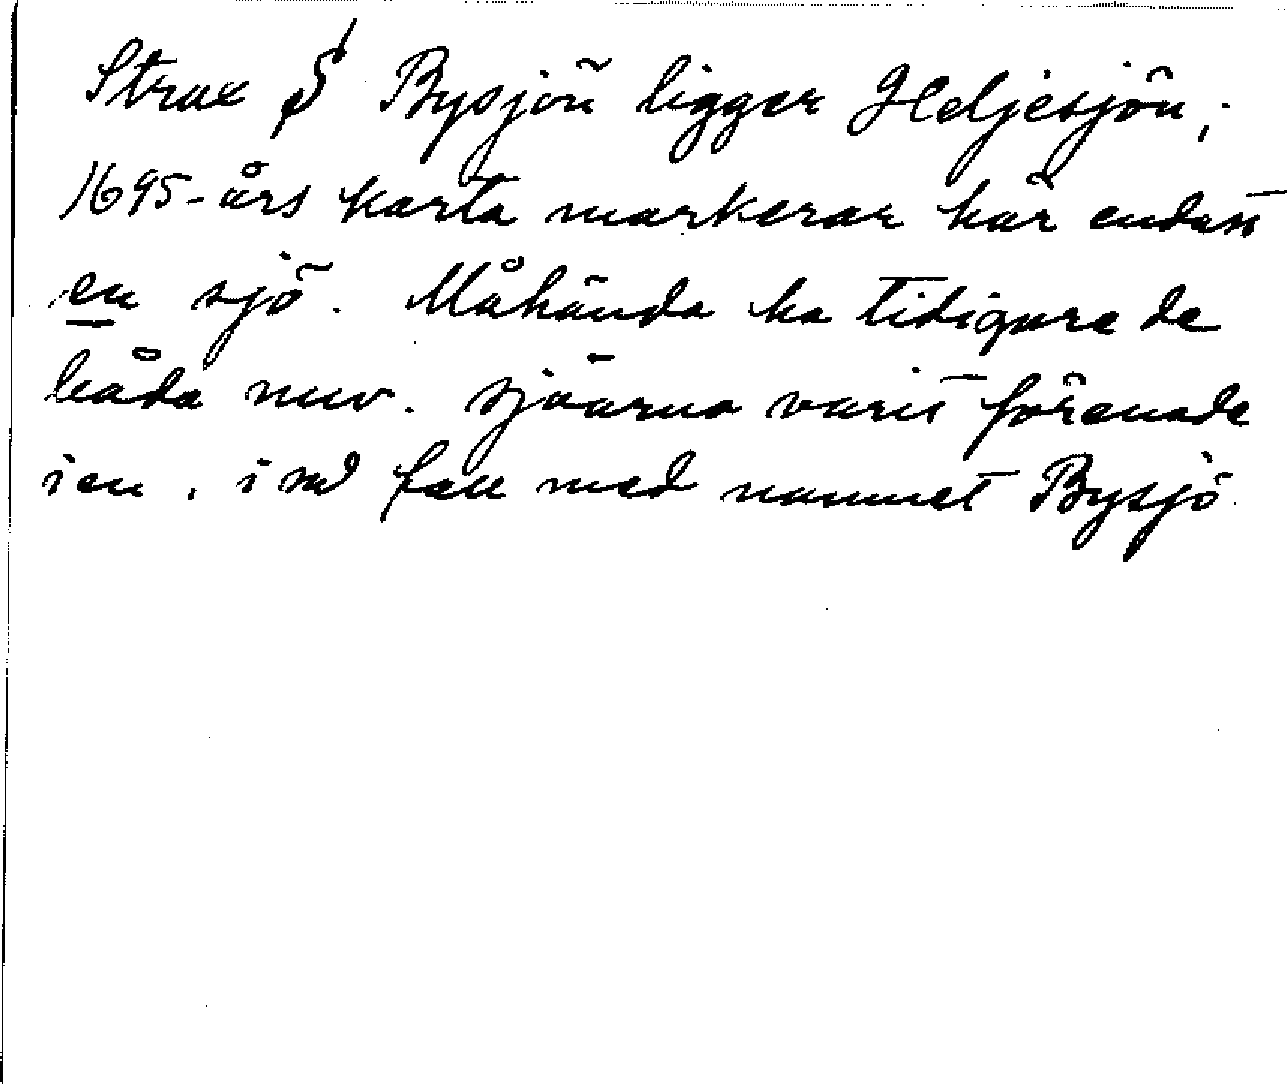 Strax S Bysjön ligger Heljesjön;
1695-års karta markerar här endast
en sjö. Måhända ha tidigare de
båda nuv. sjöarna varit förenade
i en, i så fall med namnet Bysjö.